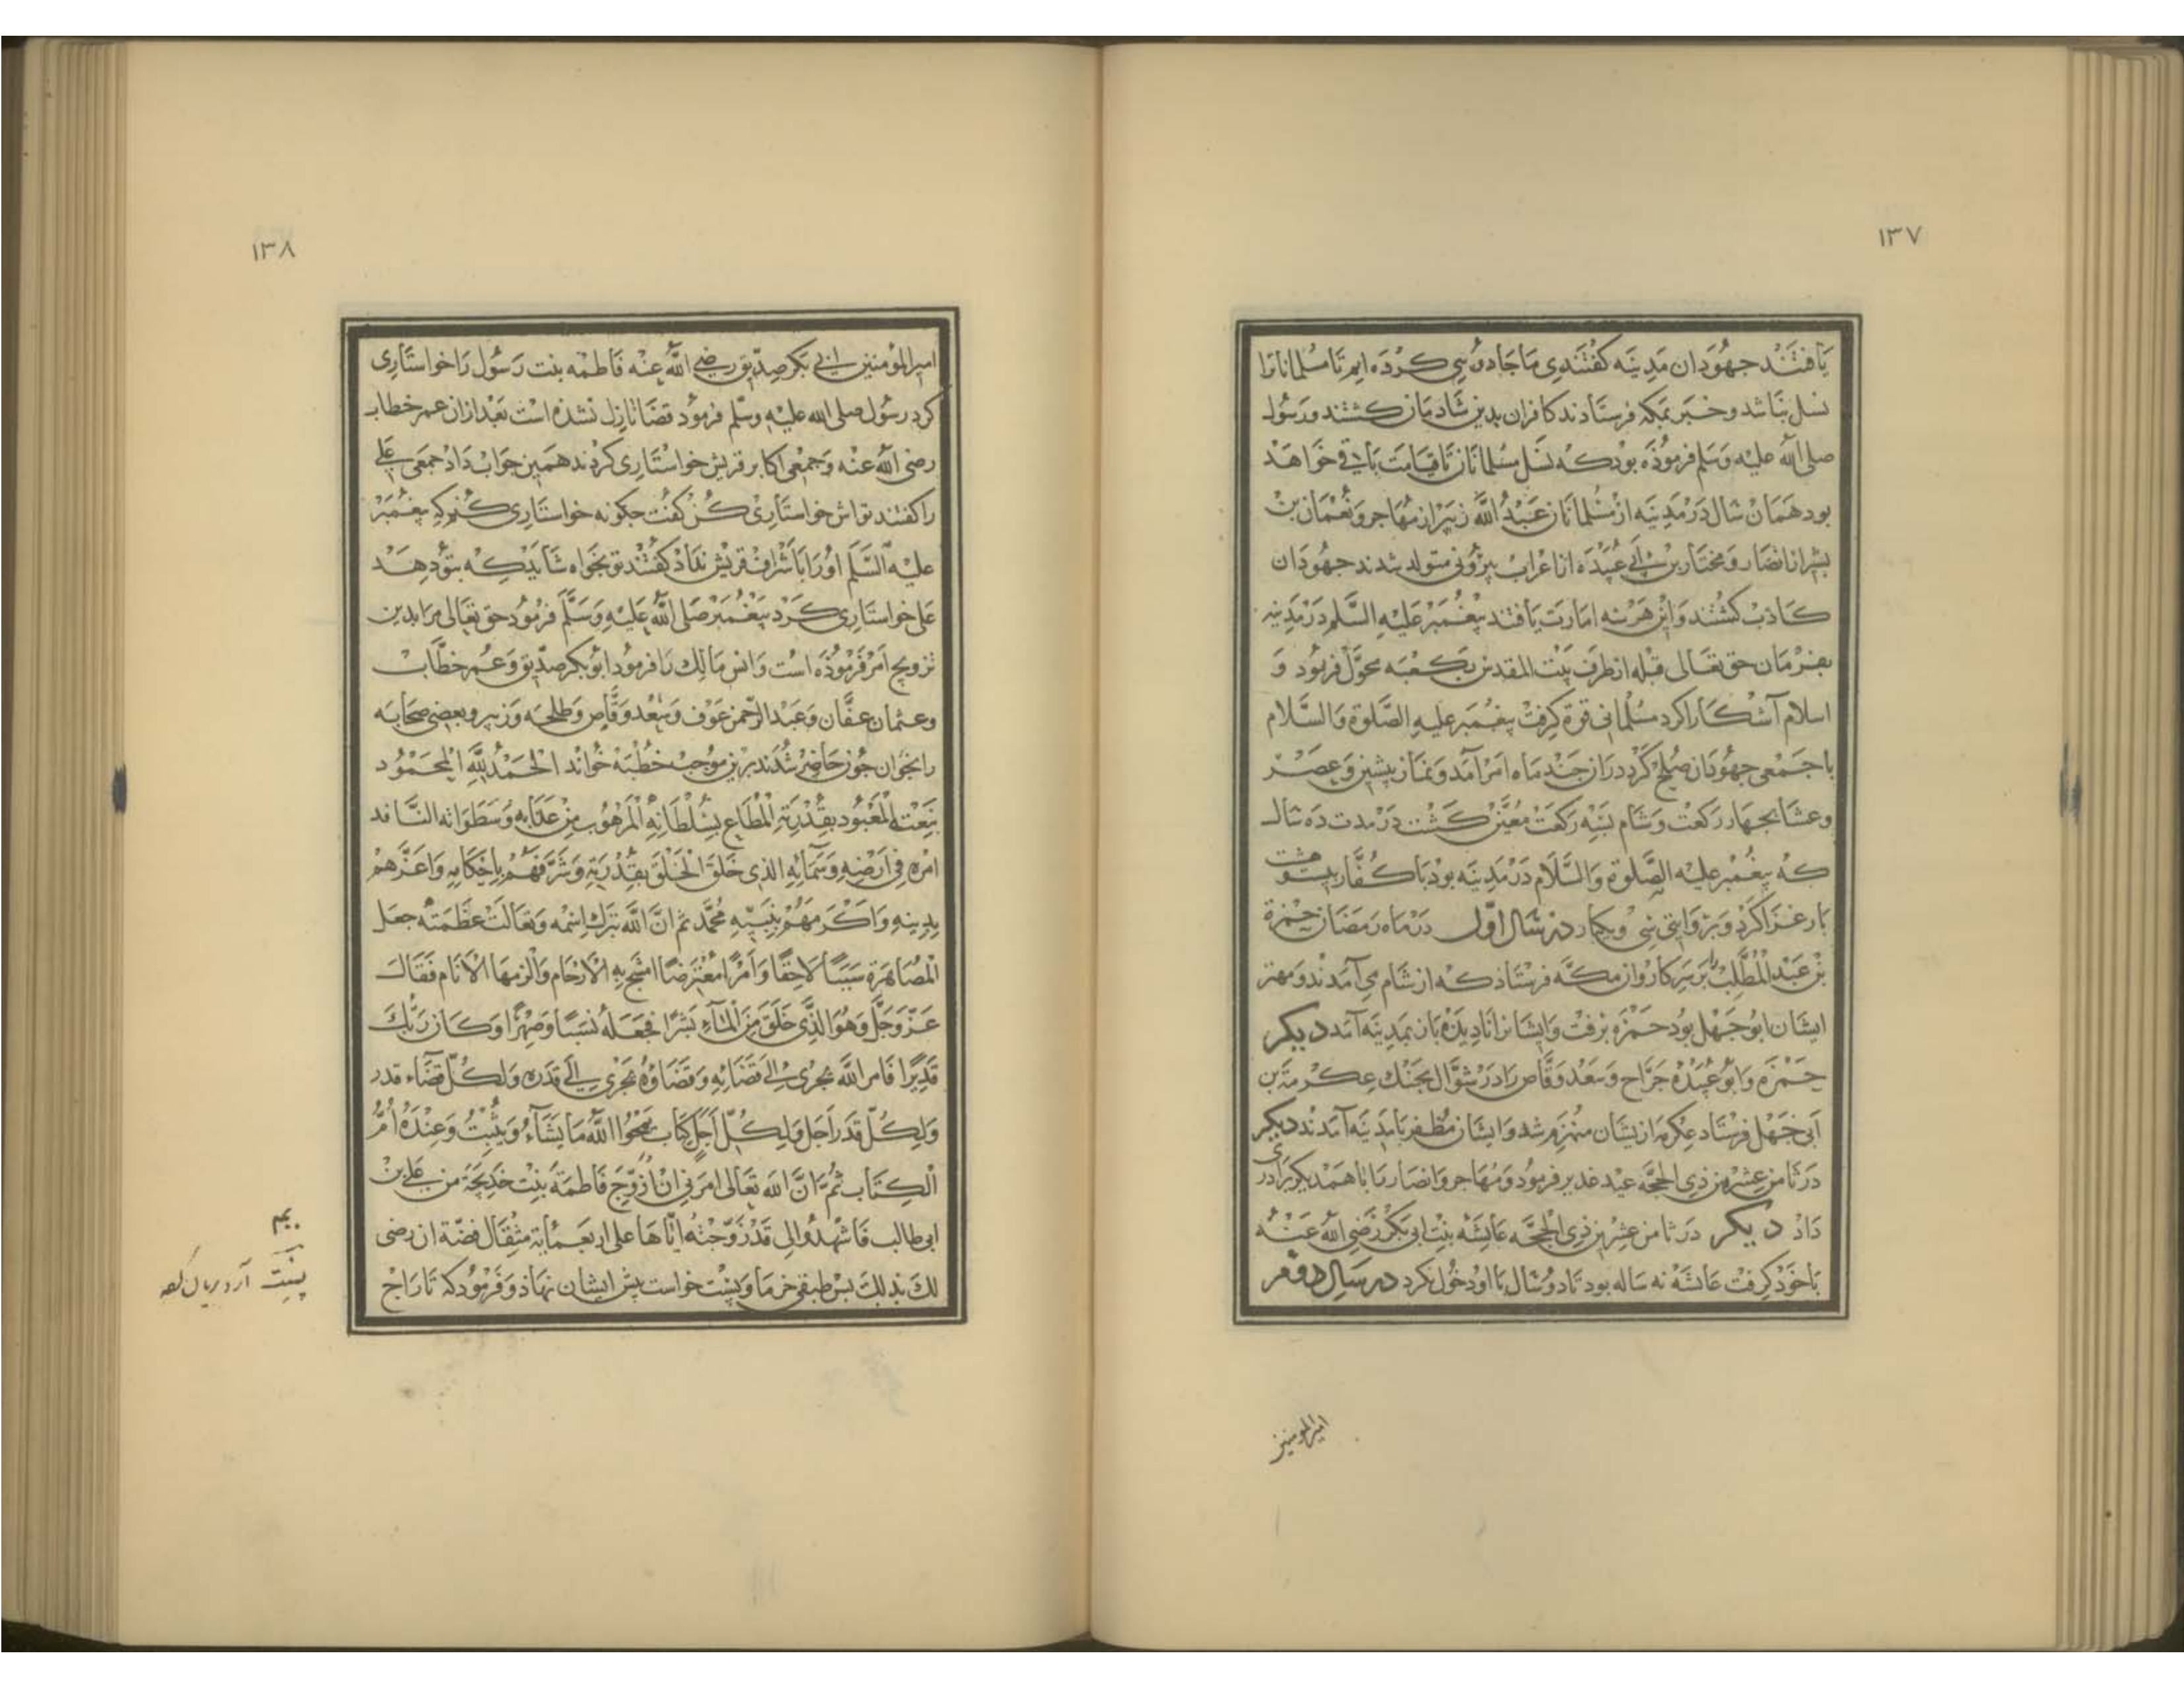 ۱۳۷
یافتند جهودان مدینه کفتندی ما جادوئی کرده ایم تا مسلمانانرا
نسل نباشد و خبر بمکه فرستادند کافران بدین شادمان کشتند و رسول
صلی الله علیه وسلم فرموذه بود که نسل مسلمانان تا قیامت باقی خواهد
بود همان سال در مدینه از مسلمانان عبد الله زبیر از مهاجر و نعمان بن
بشیر از انصار و مختار بن ابی عبیده از اعراب بیرونی متولد شدند جهودان
کاذب کشتند و این هر سه امارت یافتند پیغمبر علیه السلم در مدینه
بفرمان حق تعالی قبله از طرف بیت المقدس بکعبه محول فرمود و
اسلام آشکارا کرد مسلمانی قوة کرفت پیغمبر علیه الصلوة والسلام
با جمعی جهودان صلح کرد در ان چند ماه امر آمد و نماز پیشین و عصر
و عشا بجهار رکعت و شام بسه رکعت معین کشت در مدت ده سال
که پیغمبر علیه الصلوة والسلام در مدینه بود با کفار بیست و هشت
بار غزا کرد و بروایتی سی و یکبار در سال اول در ماه رمضان حمزة
بن عبد المطلب را بر سر کاروان مکه فرستاذ که از شام می آمدند و مهتر
ایشان ابو جهل بود حمزه برفت و ایشانرا نادیده باز بمدینه آمد دیکر
حمزه و ابو عبیده جراح و سعد وقاص را در شوال بجنک عکرمة بن
ابی جهل فرستاد عکرمه از یشان منهزم شد و ایشان مظفر با مدینه آمدند دیکر
در ثامن عشر من ذی الحجه عید غدیر فرمود و مهاجر و انصار را با همدیکر برادری
داذ دیکر در ثامن عشرین ذی الحجه عایشه بنت ابی بکر رضی الله عنه
باخود کرفت عایشه نه ساله بود تا دو سال با او دخول نکرد در سال دوم
امیرالمومنین
۱۳۸
امیر المؤمنین ابی بکر صدیق رضی الله عنه فاطمه بنت رسول را خواستاری
کرد رسول صلی الله علیه وسلم فرمود قضا نازل نشذه است بعد از ان عمر خطاب
رضی الله عنه و جمعی اکابر قریش خواستاری کردند همین جواب داد جمعی علی
را کفتند تو اش خواستاری کن کفت چکونه خواستاری کنم که پیغمبر
علیه السلم او را باشراف قریش نداذ کفتند تو بخواه شاید که بتو دهد
علی خواستاری کرد پیغمبر صلی الله علیه وسلم فرمود حق تعالی مرا بدین
تزویج امر فرموذه است و انس مالک را فرمود ابو بکر صدیق و عمر خطاب
و عثمان عفان و عبد الرحمن عوف و سعد وقاص و طلحه و زبیر و بعضی صحابه
را بخوان جون حاضر شدند برین موجب خطبه خواند الحمد لله المحمود
بنعمته المعبود بقدرته المطاع بسلطانه المرهوب من عذابه و سطواته النافد
امره فی ارضه وسمائه الذی خلق الخلق بقدرته وشرفهم باحکامه واعزهم
بدینه واکرمهم بنبیه محمد ثم ان الله تبرک اسمه وتعالت عظمته جعل
المصاهرة سببا لاحقا وامرا مفترضا اشج به الارحام والزمها الانام فقال
عز وجل وهو الذی خلق من المآء بشرا فجعله نسبا وصهرا وکان ربک
قدیرا فامر الله یجری الی قضائه وقضاؤه یجری الی قدره ولکل قضاء قدر
ولکل قدر اجل ولکل اجل کتاب یمحوا الله ما یشآء ویثبت وعنده ام
الکتاب ثم ان الله تعالی امرنی ان ازوج فاطمة بنت خدیجة من علی بن
ابی طالب فاشهدوا انی قد زوجته ایاها علی اربعمایة مثقال فضة ان رضی
لک بذلک بس طبقی خرما و پست خواست پیش ایشان نهاذ و فرمود که تاراج
پست آرد بریان